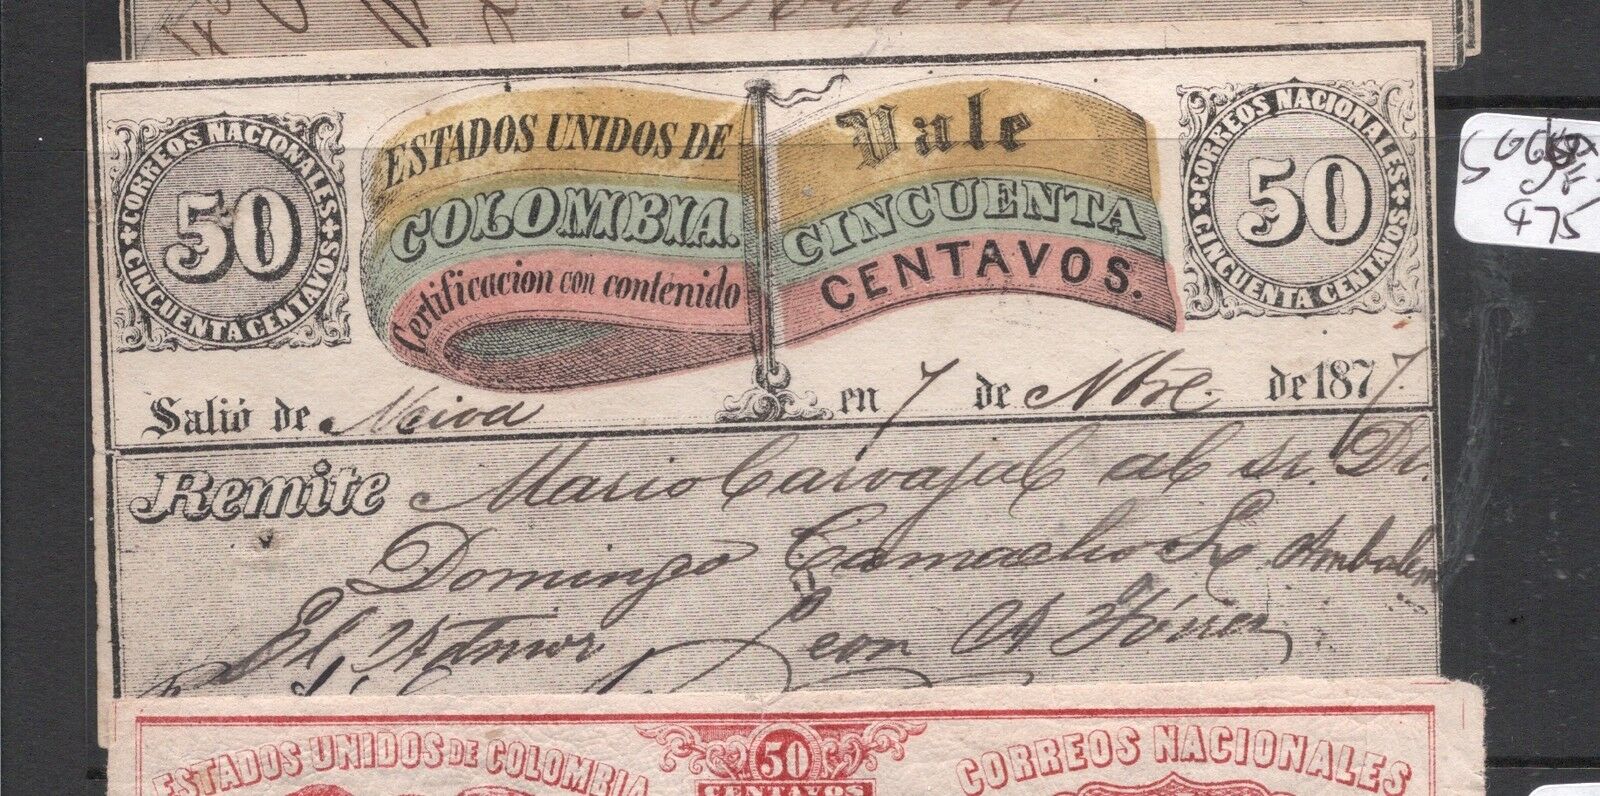 CORREOS NACIONALES
50
CINCUENTA CENTAVOS
ESTADOS UNIDOS DE
COLOMBIA.
Certificacion con contenido
Vale
CINCUENTA
CENTAVOS.
CORREOS NACIONALES
50
CINCUENTA CENTAVOS
Salió de Neiva en 7 de Nbre. de 1877.
Remite Mario Carvajal al Sr. Dr.
Domingo Camacho Ambalem
El Admor Leon A
ESTADOS UNIDOS DE COLOMBIA
50
CENTAVOS
CORREOS NACIONALES
475